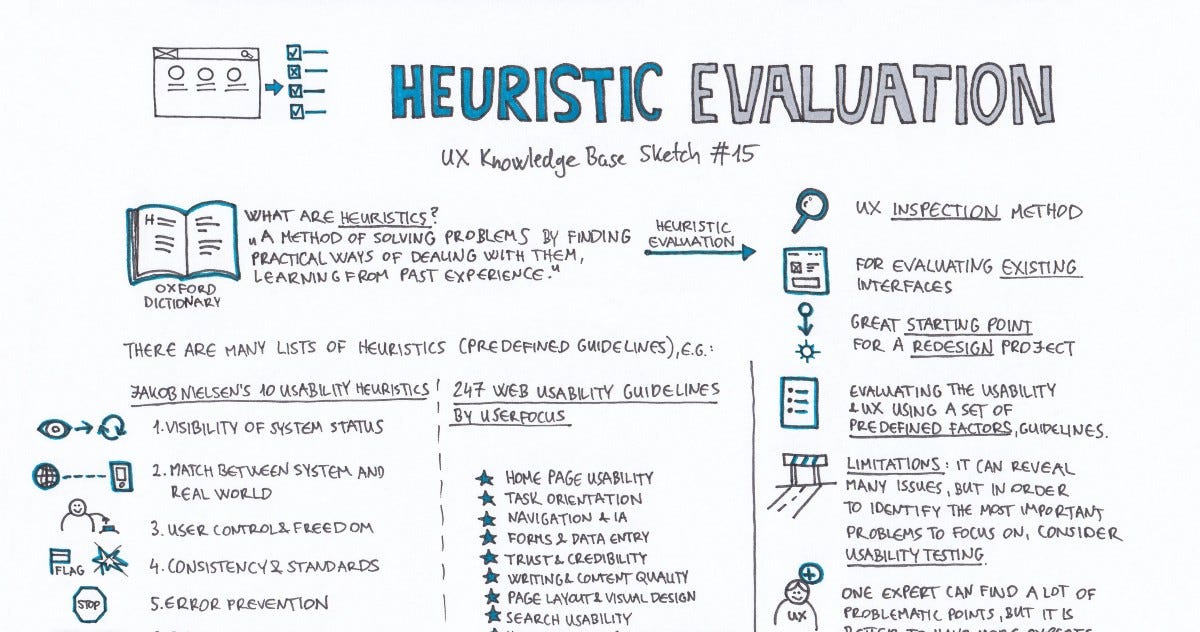 HEURISTIC EVALUATION
UX Knowledge Base Sketch #15
H
OXFORD
DICTIONARY
WHAT ARE HEURISTICS?
„A METHOD OF SOLVING PROBLEMS BY FINDING
PRACTICAL WAYS OF DEALING WITH THEM,
LEARNING FROM PAST EXPERIENCE."
HEURISTIC
EVALUATION
UX INSPECTION METHOD
FOR EVALUATING EXISTING
INTERFACES
GREAT STARTING POINT
FOR A REDESIGN PROJECT
EVALUATING THE USABILITY
& UX USING A SET OF
PREDEFINED FACTORS, GUIDELINES.
LIMITATIONS: IT CAN REVEAL
MANY ISSUES, BUT IN ORDER
TO IDENTIFY THE MOST IMPORTANT
PROBLEMS TO FOCUS ON, CONSIDER
USABILITY TESTING.
UX
ONE EXPERT CAN FIND A LOT OF
PROBLEMATIC POINTS, BUT IT IS
BETTER TO HAVE MORE EXPERTS
THERE ARE MANY LISTS OF HEURISTICS (PREDEFINED GUIDELINES), E.G.:
JAKOB NIELSEN'S 10 USABILITY HEURISTICS
1. VISIBILITY OF SYSTEM STATUS
2. MATCH BETWEEN SYSTEM AND
REAL WORLD
3. USER CONTROL & FREEDOM
FLAG
4. CONSISTENCY & STANDARDS
STOP
5. ERROR PREVENTION
247 WEB USABILITY GUIDELINES
BY USERFOCUS
HOME PAGE USABILITY
TASK ORIENTATION
NAVIGATION & IA
FORMS & DATA ENTRY
TRUST & CREDIBILITY
WRITING & CONTENT QUALITY
PAGE LAYOUT & VISUAL DESIGN
SEARCH USABILITY